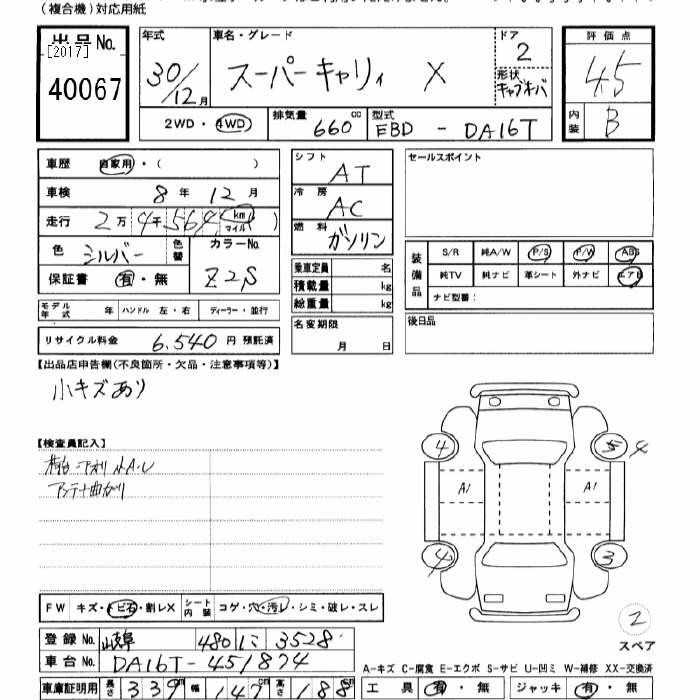 (複合機)対応用紙
出品No.
[2017]
40067
年式 30/12月
車名・グレード スーパーキャリィ X
ドア 2
形状 キャブオーバ
2WD・4WD
排気量 660cc
型式 EBD - DA16T
評価点 4.5
内装 B
車歴 自家用・( )
車検 8年 12月
走行 2万4千564km マイル( )
色 シルバー 色替
カラーNo. Z2S
保証書 有・無
シフト AT
冷房 AC
燃料 ガソリン
乗車定員 名
積載量 kg
総重量 kg
セールスポイント
装備品
S/R 純A/W P/S P/W ABS
純TV 純ナビ 革シート 外ナビ エアB
ナビ型番:
モデル年式 年 ハンドル 左・右 ディーラー・並行
リサイクル料金 6,540円 預託済
名変期限 月 日
後日品
【出品店申告欄(不良箇所・欠品・注意事項等)】
小キズあり
【検査員記入】
荷台・アオリ 小A・U
アンテナ曲がり
4 5 4
A1 A1
4 3
2
スペア
FW キズ・トビ石・割レX シート内装 コゲ・穴・汚レ・シミ・破レ・スレ
登録No. 岐阜 480 に 3528
車台No. DA16T-451874
車庫証明用 長さ 339cm 幅 147cm 高さ 188cm
A-キズ C-腐食 E-エクボ S-サビ U-凹ミ W-補修 XX-交換済
工具 有・無 ジャッキ 有・無